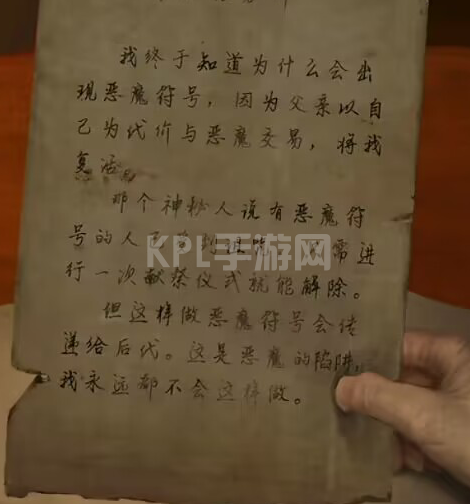 我终于知道为什么会出
现恶魔符号，因为父亲以自
己为代价与恶魔交易，将我
复活。
那个神秘人说有恶魔符
号的人已 到诅 需进
KPL手游网
行一次献祭仪式就能解除。
但这样做恶魔符号会传
递给后代。这是恶魔的陷阱，
我永远都不会这样做。